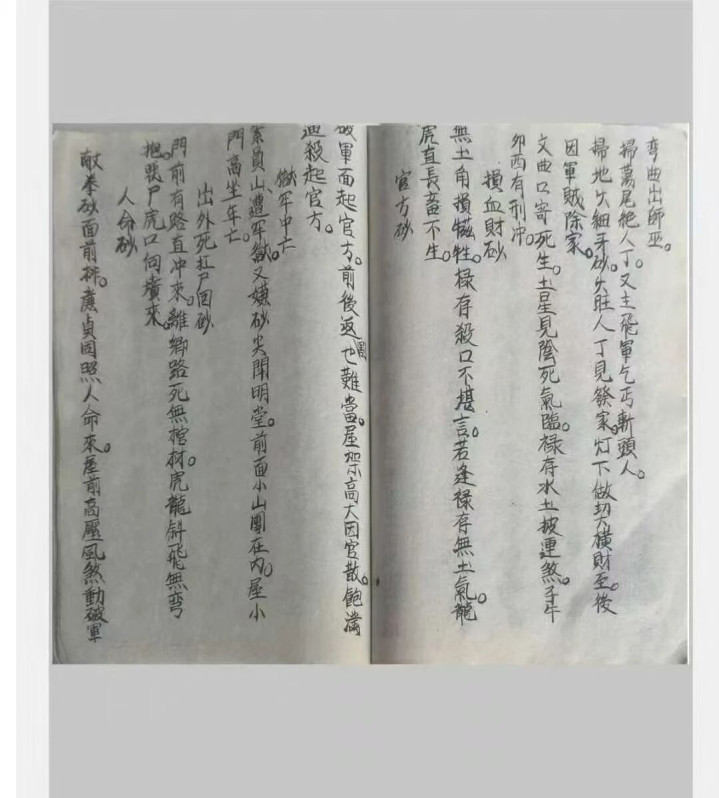 弯曲出師巫。
掃蕩尾絕人丁。又主飛軍乞丐斬頭人。
掃地欠細牙砂。欠旺人丁見發家。灯下做契大橫財至後
因軍賊除家。
文曲口寄死生。土星見陰死氣臨。祿存水土披連煞。子午
卯酉有刑冲。
損血財砂
無土角損犧牲。祿存殺口不堪言。若逢祿存無土氣。龍
虎直長畜不生。
官方砂
破軍面起官方。前後返也難當。屋架高大因官散。飽滿
逼殺起官方。
獄牢中亡
山遭牢獄。又嫌砂尖開明堂。前面小山團在內。屋小
門高坐年亡。
出外死扛尸回砂
門前有路直冲來。離鄉路死無棺材。虎龍斜飛無弯
抱。尸虎口向墳來。
人命砂
献拳砂面前排。廉貞因照人命來。屋前高壓風煞動破軍